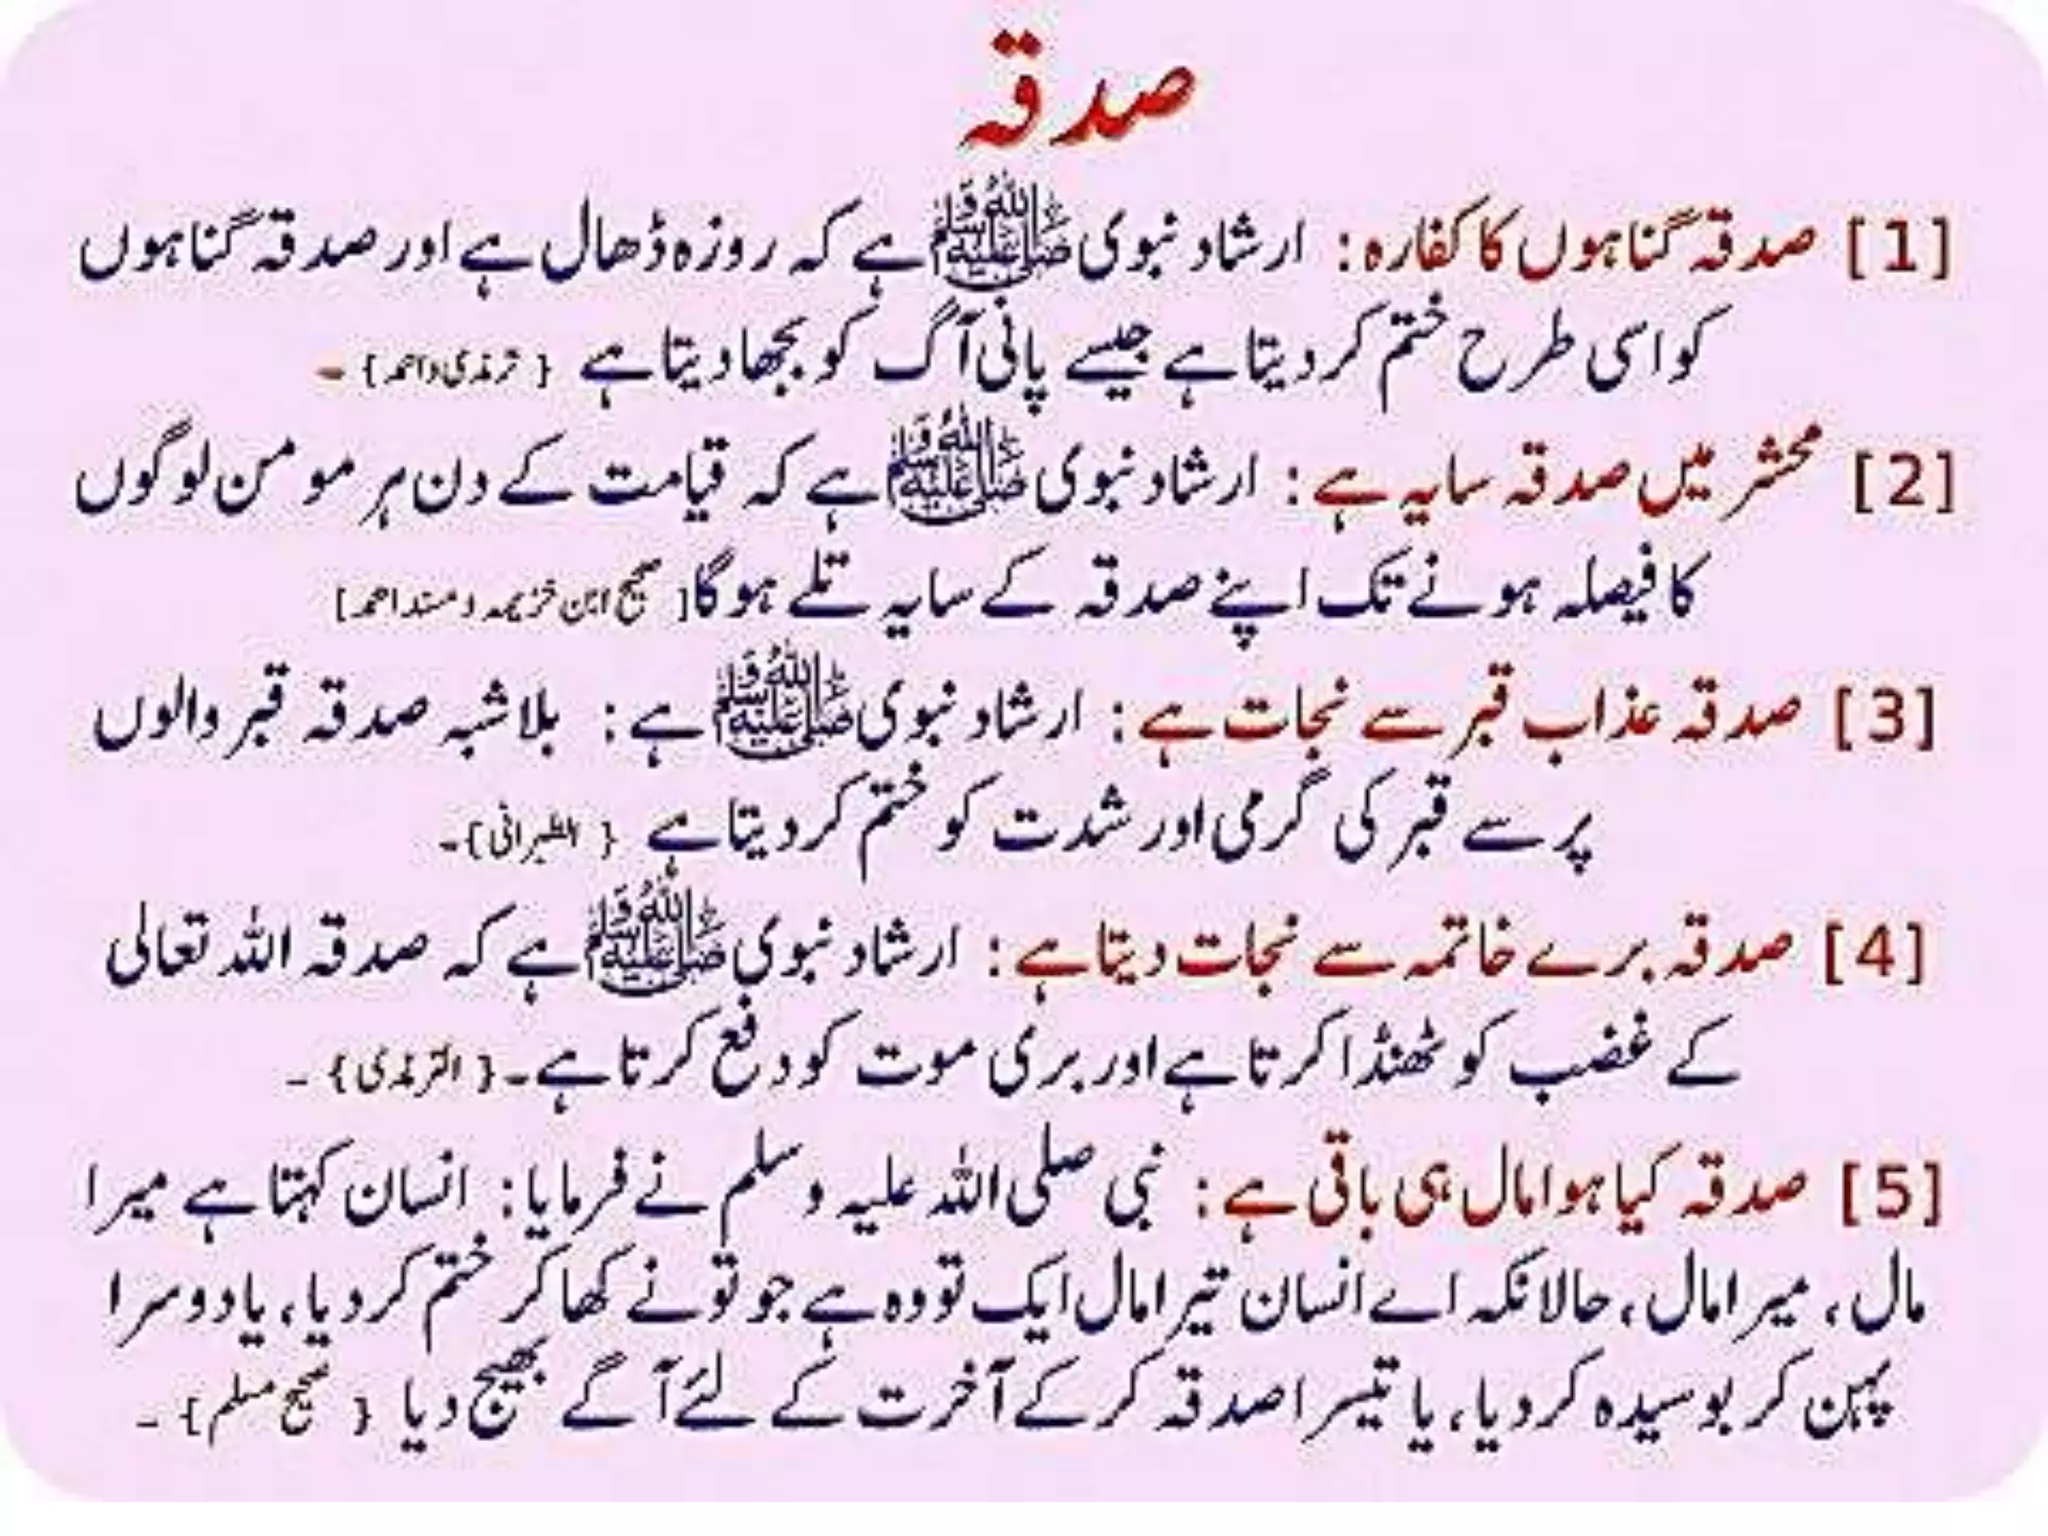 صدقہ
[1] صدقہ گناہوں کا کفارہ: ارشاد نبوی ﷺ ہے کہ روزہ ڈھال ہے اور صدقہ گناہوں
کو اسی طرح ختم کر دیتا ہے جیسے پانی آگ کو بجھا دیتا ہے { ترمذی و احمد} ۔
[2] محشر میں صدقہ سایہ ہے: ارشاد نبوی ﷺ ہے کہ قیامت کے دن ہر مومن لوگوں
کا فیصلہ ہونے تک اپنے صدقہ کے سایہ تلے ہو گا [ صحیح ابن خزیمہ و مسند احمد]
[3] صدقہ عذاب قبر سے نجات ہے: ارشاد نبوی ﷺ ہے: بلا شبہ صدقہ قبر والوں
پر سے قبر کی گرمی اور شدت کو ختم کر دیتا ہے { الطبرانی}۔
[4] صدقہ برے خاتمہ سے نجات دیتا ہے: ارشاد نبوی ﷺ ہے کہ صدقہ اللہ تعالی
کے غضب کو ٹھنڈا کرتا ہے اور بری موت کو دفع کرتا ہے۔ { الترمذی} ۔
[5] صدقہ کیا ہوا مال ہی باقی ہے: نبی صلی اللہ علیہ وسلم نے فرمایا: انسان کہتا ہے میرا
مال، میرا مال، حالانکہ اے انسان تیرا مال ایک تو وہ ہے جو تو نے کھا کر ختم کر دیا، یا دوسرا
پہن کر بوسیدہ کر دیا، یا تیسرا صدقہ کر کے آخرت کے لئے آگے بھیج دیا { صحیح مسلم} ۔